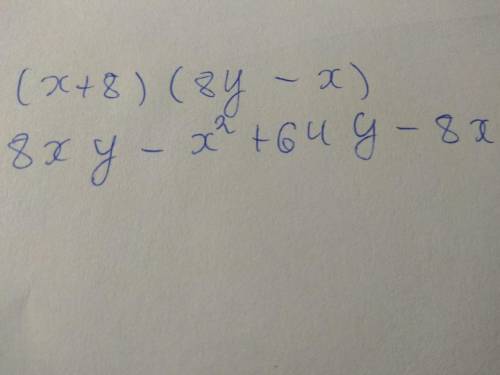 (x+8) (8y - x)
8xy - x² + 64y - 8x